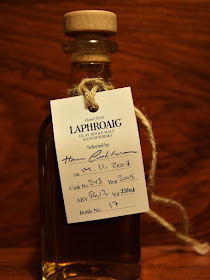 Hand Filled
LAPHROAIG
ISLAY SINGLE MALT
SCOTCH WHISKY
Selected by
on 14. 11. 2017
Cask No. 243 Year 2005
ABV 56,1% Vol 250ml
Bottle No. 17